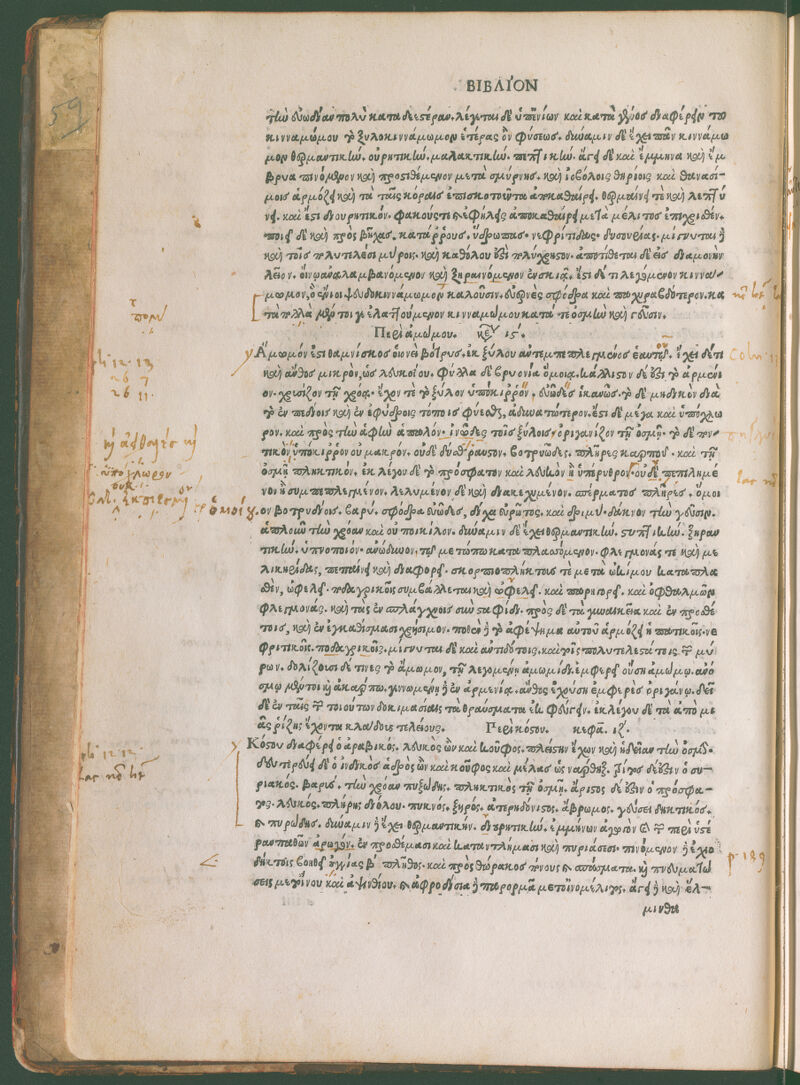 ΒΙΒΛΊΟΝ
τὴν εὐωδίαν πολὺ καταδεεστέραν. λέγεται δὲ ὑπ' ἐνίων καὶ κατὰ γένος διαφέρειν τοῦ
κινναμώμου τὸ ξυλοκιννάμωμον ἑτέρας ὂν φύσεως. δύναμιν δὲ ἔχει πᾶν κιννάμω
μον θερμαντικὴν. οὐρητικὴν. μαλακτικὴν. πεπτικὴν. ἄγει δὲ καὶ ἔμμηνα καὶ ἔμ
βρυα πινόμενον καὶ προστιθέμενον μετὰ σμύρνης. καὶ ἰοβόλοις θηρίοις καὶ θανασί-
μοις ἁρμόζει καὶ τὰ ταῖς κόραις ἐπισκοτοῦντα ἀποκαθαίρει. θερμαίνει τὲ καὶ λεπτύ
νει. καὶ ἔστι διουρητικόν. φακούς τε καὶ ἐφήλεις ἀποκαθαίρει μετὰ μέλιτος ἐπιχρισθέν.
ποιεῖ δὲ καὶ πρὸς βῆχας. κατάρρους. ὕδρωπας. νεφρίτιδας. δυσουρίας. μίγνυται
καὶ τοῖς πολυτελέσι μύροις. καὶ καθόλου ἐστὶ πολύχρηστον. ἀποτίθεται δὲ εἰς διαμονὴν
λεῖον. οἴνῳ ἀναλαμβανόμενον καὶ ξηραινόμενον ἐν σκιᾷ. ἔστι δέ τι λεγόμενον κιννα/
μωμον, ὃ ἔνιοι ψευδοκιννάμωμον καλοῦσιν. εὐῶνες σφόδρα καὶ τραχυραβδότερον. κα
τὰ πολλὰ μέντοι γε ἐλαττούμενον κινναμώμου κατά τε ὀσμὴν καὶ γεῦσιν.
Περὶ ἀμώμου. κεφ ιδ.
Ἄμωμόν ἐστι θαμνίσκος οἱονεὶ βότρυς. ἐκ ξύλου ἀντεμπεπλεγμένος ἑαυτῷ. ἔχει δέ τι
καὶ ἄνθος μικρὸν, ὡς λευκοΐου. φύλλα δὲ βρυονίᾳ ὅμοια. κάλλιστον δέ ἐστι τὸ ἀρμένι
ον. χρυσίζον τῇ χρόᾳ. ἔχον τέ τὸ ξύλον ὑπόκιρρον. εὐῶδες ἱκανῶς. τὸ δὲ μηδικὸν διὰ
τὸ ἐν πεδίοις καὶ ἐν ἐφύδροις τόποις φύεσθαι, ἀδυνατώτερον. ἔστι δὲ μέγα καὶ ὑπόχλω
ρον. καὶ πρὸς τὴν ἁφὴν ἁπαλόν. ἰνῶδες τοῖς ξύλοις. ὀριγανίζον τῇ ὀσμῇ. τὸ δὲ πον
τικὸν ὑπόκιρρον οὐ μακρόν. οὐδὲ δύσθραυστον. βοτρυῶδες. πλῆρες καρποῦ. καὶ τῇ
ὀσμῇ πληκτικόν. ἐκλέγου δὲ τὸ πρόσφατον καὶ λευκὸν ἢ ὑπέρυθρον. οὐδὲ πεπιλημέ
νον ἢ συμπεπλεγμένον. λελυμένον δὲ καὶ διακεχυμένον. σπέρματος πλῆρες. ὅμοι
ον βοτρυδίοις. βαρὺ. σφόδρα εὐῶδες, δίχα εὐρῶτος. καὶ δριμὺ. δάκνον τὴν γεῦσιν.
ἁπλοῦν τὴν χρόαν καὶ οὐ ποικίλον. δύναμιν δὲ ἔχει θερμαντικὴν. στυπτικὴν. ξηραν
τικὴν. ὑπνοποιόν. ἀνώδυνον. τῷ μετώπῳ καταπλασσόμενον. φλεγμονάς τε καὶ με
λικηρίδας, πεπαίνει καὶ διαφορεῖ. σκορπιοπλήκτους τε μετὰ ὠκίμου καταπλα
σθὲν, ὠφελεῖ. ποδαγρικοῖς συμβάλλεται καὶ ὠφελεῖ. καὶ παρηγορεῖ. καὶ ὀφθαλμῶν
φλεγμονάς. καὶ τὰς ἐν σπλάγχνοις σὺν σταφίδι. πρὸς δὲ τὰ γυναικεῖα καὶ ἐν προσθέ
τοις, καὶ ἐν ἐγκαθίσμασι χρήσιμον. ποθὲν τὸ ἀφέψημα αὐτοῦ ἁρμόζει ἡπατικοῖς. νε
φριτικοῖς. ποδαγρικοῖς. μίγνυται δὲ καὶ ἀντιδότοις, καὶ τοῖς πολυτελεστάτοις τῶν μύ
ρων. δολίζουσι δέ τινες τὸ ἄμωμον, τῇ λεγομένῃ ἀμωμίδι. ἐμφερεῖ οὔσῃ ἀμώμῳ. ἀνό
σμῳ μέντοι καὶ ἀκάρπῳ. γινομένῃ ἐν ἀρμενίᾳ. ἄνθος ἐχούσῃ ἐμφερὲς ὀριγάνῳ. δεῖ
δὲ ἐν ταῖς τῶν τοιούτων δοκιμασίαις τὰ θραύσματα ἐκφεύγειν. ἐκλέγου δὲ τὰ ἀπὸ μι
ᾶς ῥίζης ἔχοντα κλάδους τελείους. Περὶ κόστου. κεφά. ιε.
Κόστου διαφέρει ὁ ἀραβικός. λευκὸς ὢν καὶ κοῦφος. πλείστην ἔχων καὶ ἡδεῖαν τὴν ὀσμήν.
δευτερεύει δὲ ὁ ἰνδικὸς ἁδρὸς ὢν καὶ κοῦφος καὶ μέλας ὡς νάρθηξ. τρίτος δέ ἐστιν ὁ συ-
ριακός. βαρύς. τὴν χρόαν πυξώδης. πληκτικὸς τῇ ὀσμῇ. ἄριστος δέ ἐστιν ὁ πρόσφα-
τος. λευκός. πλήρης διόλου. πυκνός. ξηρός. ἀτερηδόνιστος. ἄβρωμος. γεύσει δηκτικός.
καὶ πυρώδης. δύναμιν ἔχει θερμαντικήν. διουρητικὴν. ἐμμήνων ἀγωγὸν καὶ τῶν περὶ ὑστέ
ραν παθῶν ἀρωγόν. ἐν προσθέμασι καὶ καταντλήμασι καὶ πυριάσεσι. πινόμενον ἐχιο
δήκτοις βοηθεῖ οὐγγίας β΄ πλῆθος. καὶ πρὸς θώρακος πόνους καὶ σπάσματα. καὶ πνευματώ
σεις μετ' οἴνου καὶ ἀψινθίου. καὶ ἀφροδίσια παρορμᾷ μετ' οἰνομέλιτος. ἄγει καὶ ἕλ-
μινθα
59